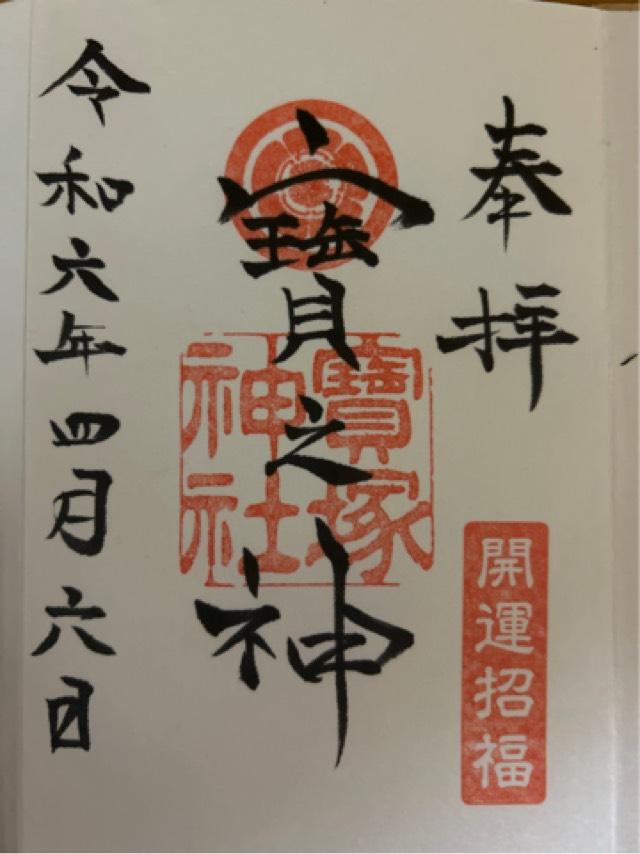 奉拝
開運招福
寳之神
寳塚神社
令和六年四月六日